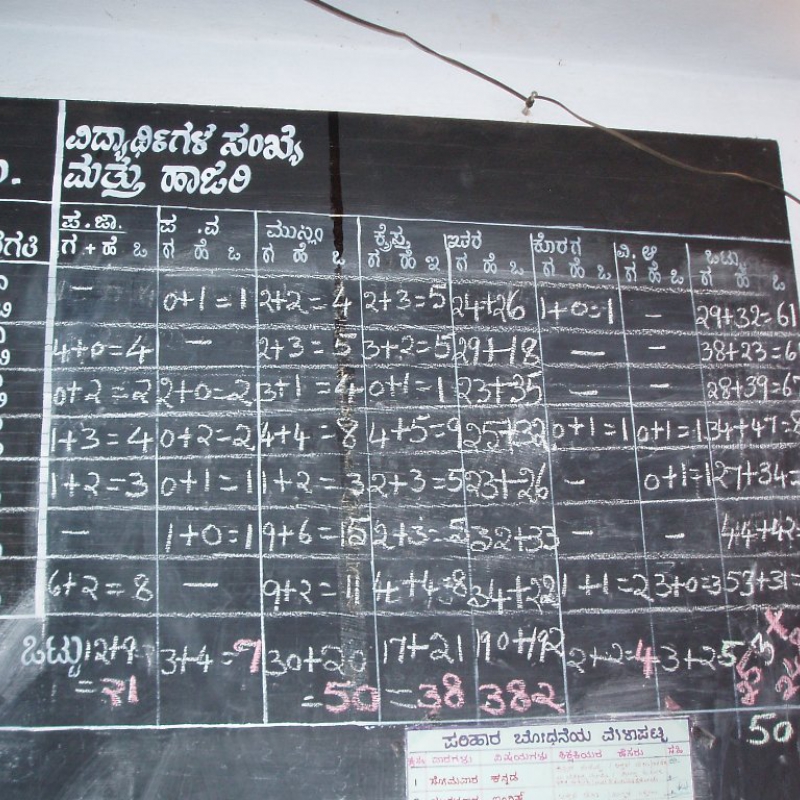 ವಿದ್ಯಾರ್ಥಿಗಳ ಸಂಖ್ಯೆ
ಮತ್ತು ಹಾಜರಿ
ಪ.ಜಾ. ಪ.ವ ಮುಸ್ಲಿಂ ಕ್ರೈಸ್ತ ಇತರ ಕೊರಗ ವಿ.ಅ ಒಟ್ಟು
ಗ + ಹೆ ಒ ಗ ಹೆ ಒ ಗ ಹೆ ಒ ಗ ಹೆ ಇ ಗ ಹೆ ಒ ಗ ಹೆ ಒ ಗ ಹೆ ಒ ಗ ಹೆ ಒ
— 0+1=1 2+2=4 2+3=5 24+26 1+0=1 — 29+32=61
4+0=4 — 2+3=5 3+2=5 29+18 — — 38+23=6
0+2=2 2+0=2 3+1=4 0+1=1 23+35 — — 28+39=67
1+3=4 0+2=2 4+4=8 4+5=9 25+32 0+1=1 0+1=1 34+47=8
1+2=3 0+1=1 1+2=3 2+3=5 23+26 — 0+1=1 27+34=
— 1+0=1 9+6=15 2+3=5 32+33 — — 44+42=
6+2=8 — 9+2=11 4+4=8 34+22 1+1=2 3+0=3 53+31=
ಒಟ್ಟು 12+9 3+4=7 30+20 17+21 190+192 2+2=4 3+2 5
=21 =50 =38 382
50
ಪರಿಹಾರ ಬೋಧನೆಯ ವೇಳಾಪಟ್ಟಿ
ವಾರಗಳು ವಿಷಯಗಳು ಶಿಕ್ಷಕಿಯರ ಹೆಸರು ಸಹಿ
1 ಸೋಮವಾರ ಕನ್ನಡ